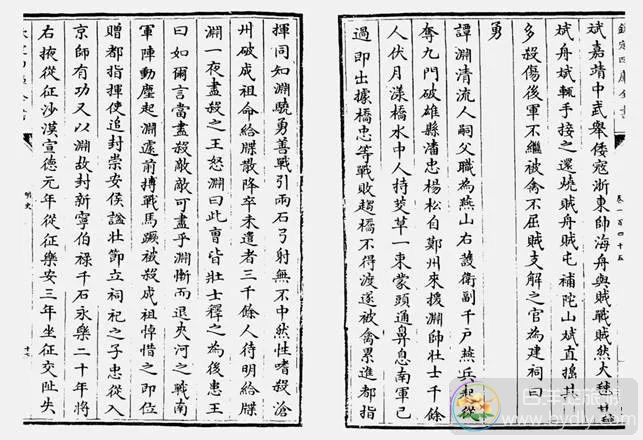 欽定四庫全書
卷一百四十五
斌嘉靖中武舉倭寇浙東帥海舟與賊戰賊然大
斌舟斌輒手接之還燒賊舟賊屯補陀山斌直搗其
多殺傷後軍不繼被禽不屈賊支解之官為建祠曰
勇
譚淵清流人嗣父職為燕山右護衛副千戶燕兵起從
奪九門破雄縣潘忠楊松自鄭州來援淵帥壯士千餘
人伏月漾橋水中人持茭草一束蒙頭通鼻息南軍已
過即出據橋忠等戰敗趨橋不得渡遂被禽累進都指
揮同知淵驍勇善戰引兩石弓射無不中然性嗜殺滄
州破成祖命給牒散降卒未遣者三千餘人待明給牒
淵一夜盡殺之王怒淵曰此曹皆壯士釋之為後患王
曰如爾言當盡殺敵敵可盡乎淵慚而退夾河之戰南
軍陣動塵起淵遽前搏戰馬蹶被殺成祖悼惜之即位
贈都指揮使追封崇安侯諡壯節立祠祀之子忠從入
京師有功又以淵故封新寧伯祿千石永樂二十年將
右掖從征沙漠宣德元年從征樂安三年坐征交阯失
明史